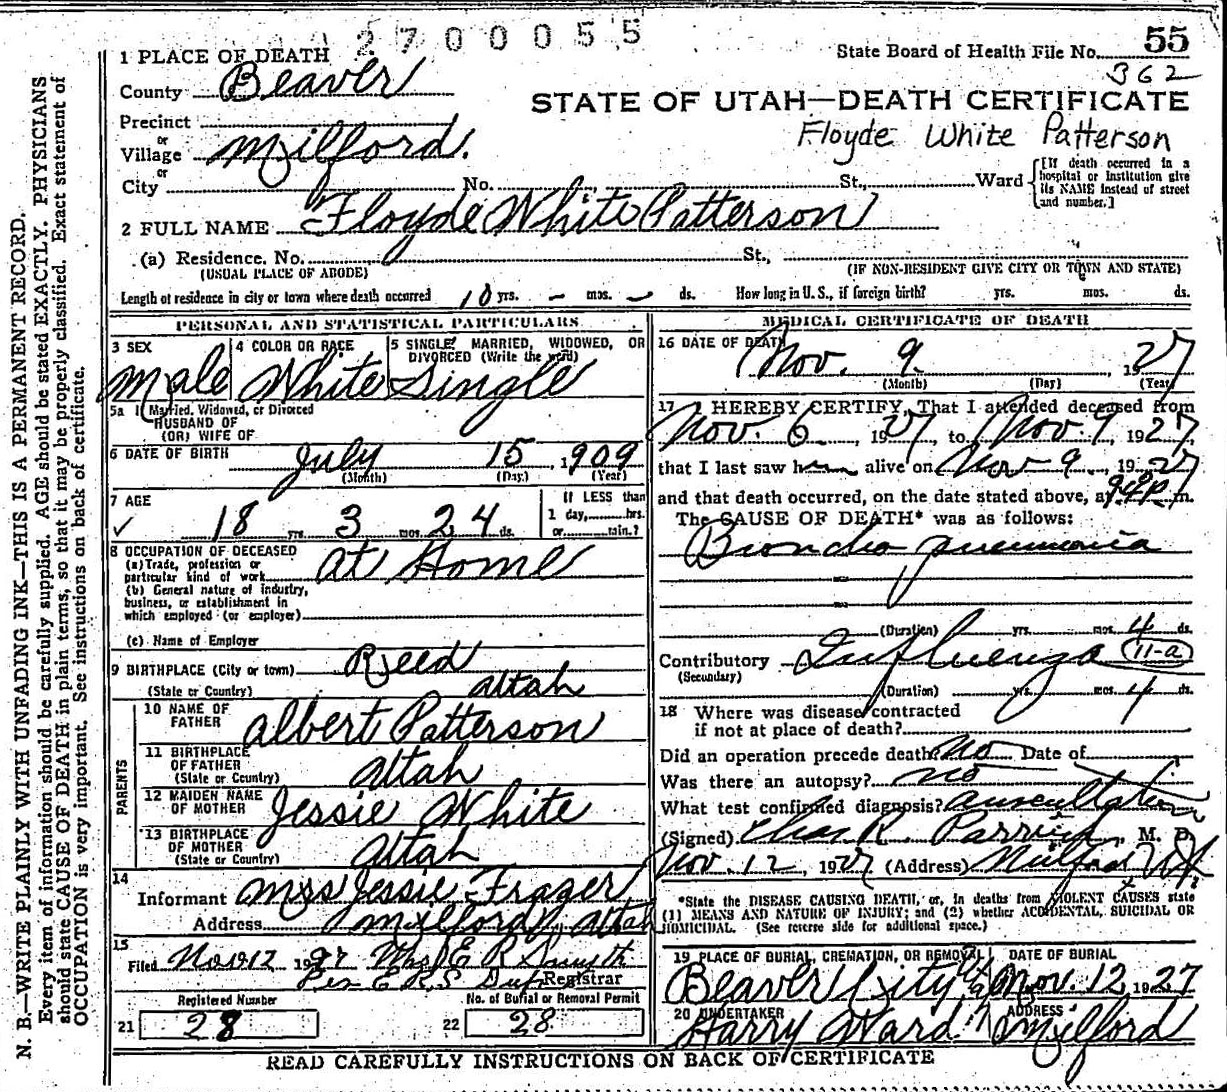 2700055
State Board of Health File No. 55
362
1 PLACE OF DEATH
County Beaver
STATE OF UTAH—DEATH CERTIFICATE
Precinct
or
Village Milford.
Floyde White Patterson
or
City No. St., Ward
[If death occurred in a
hospital or institution give
its NAME instead of street
and number.]
2 FULL NAME Floyde White Patterson
(a) Residence. No. St.,
(USUAL PLACE OF ABODE) (IF NON-RESIDENT GIVE CITY OR TOWN AND STATE)
Length of residence in city or town where death occurred 10 yrs. – mos. – ds. How long in U.S., if foreign birth? yrs. mos. ds.
PERSONAL AND STATISTICAL PARTICULARS
3 SEX
Male
4 COLOR OR RACE
White
5 SINGLE, MARRIED, WIDOWED, OR
DIVORCED (Write the word)
Single
5a If Married, Widowed, or Divorced
HUSBAND OF
(OR) WIFE OF
6 DATE OF BIRTH July 15, 1909
(Month) (Day) (Year)
7 AGE
18 yrs. 3 mos. 24 ds.
If LESS than
1 day, hrs.
or min.?
8 OCCUPATION OF DECEASED
(a) Trade, profession or
particular kind of work at Home
(b) General nature of industry,
business, or establishment in
which employed (or employer)
(c) Name of Employer
9 BIRTHPLACE (City or town) Reed
(State or Country) Utah
PARENTS
10 NAME OF
FATHER Albert Patterson
11 BIRTHPLACE
OF FATHER
(State or Country) Utah
12 MAIDEN NAME
OF MOTHER Jessie White
13 BIRTHPLACE
OF MOTHER
(State or Country) Utah
14
Informant Mrs Jessie Frazer
Address Milford, Utah
15
Filed Nov 12 1927 Mrs E R Smyth
Per E R S Registrar
Registered Number
21 28
No. of Burial or Removal Permit
22 28
MEDICAL CERTIFICATE OF DEATH
16 DATE OF DEATH
Nov. 9 1927
(Month) (Day) (Year)
17 I HEREBY CERTIFY, That I attended deceased from
Nov. 6, 1927, to Nov. 9, 1927,
that I last saw him alive on Nov 9, 1927
and that death occurred, on the date stated above, at m.
The CAUSE OF DEATH* was as follows:
Broncho pneumonia
(Duration) yrs. mos. 4 ds.
Contributory Influenza 11-a
(Secondary)
(Duration) yrs. mos. 4 ds.
18 Where was disease contracted
if not at place of death?
Did an operation precede death? No Date of
Was there an autopsy? no
What test confirmed diagnosis? auscultation
(Signed) Chas R. Parrish, M. D.
Nov. 12, 1927 (Address) Milford Ut.
*State the DISEASE CAUSING DEATH, or, in deaths from VIOLENT CAUSES state
(1) MEANS AND NATURE OF INJURY; and (2) whether ACCIDENTAL, SUICIDAL OR
HOMICIDAL. (See reverse side for additional space.)
19 PLACE OF BURIAL, CREMATION, OR REMOVAL DATE OF BURIAL
Beaver City Nov. 12, 1927
20 UNDERTAKER ADDRESS
Harry Ward Milford
READ CAREFULLY INSTRUCTIONS ON BACK OF CERTIFICATE
N. B.—WRITE PLAINLY WITH UNFADING INK—THIS IS A PERMANENT RECORD.
Every item of information should be carefully supplied. AGE should be stated EXACTLY. PHYSICIANS
should state CAUSE OF DEATH in plain terms, so that it may be properly classified. Exact statement of
OCCUPATION is very important. See instructions on back of certificate.